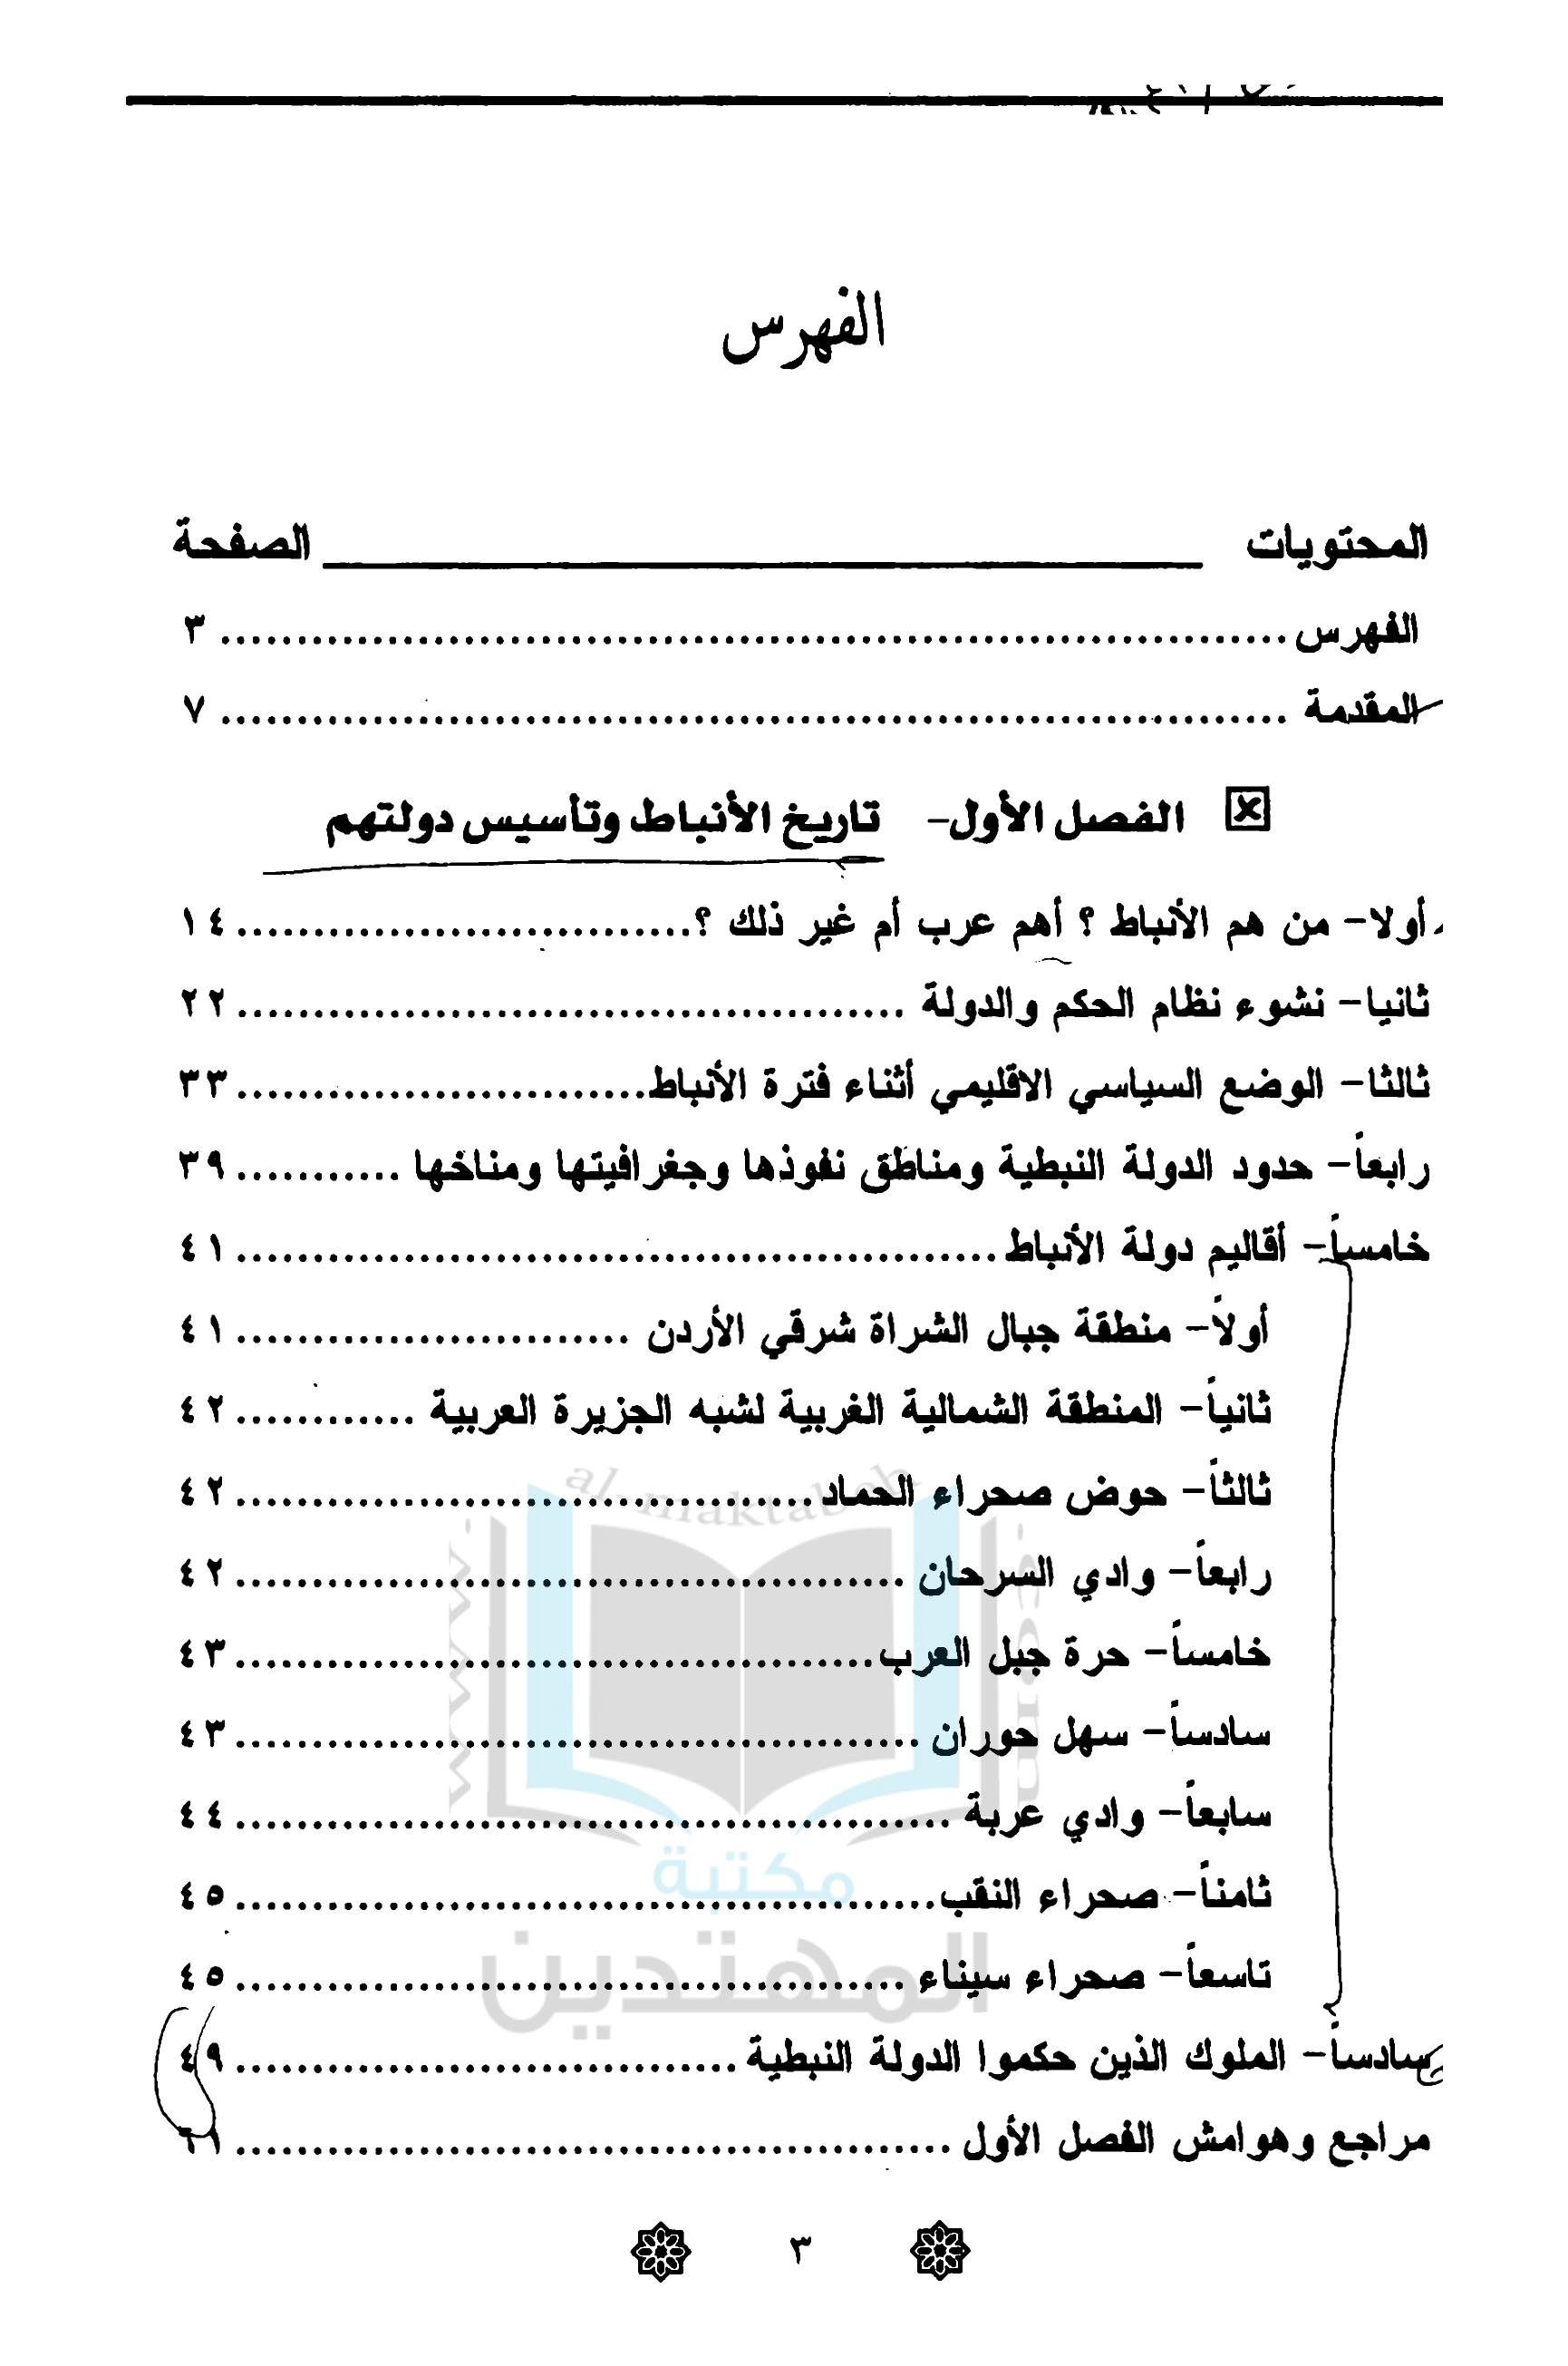 الفهرس
المحتويات الصفحة
الفهرس ........ ٣
المقدمة ........ ٧
الفصل الأول- تاريخ الأنباط وتأسيس دولتهم
أولا- من هم الأنباط ؟ أهم عرب أم غير ذلك ؟ ........ ١٤
ثانيا- نشوء نظام الحكم والدولة ........ ٢٢
ثالثا- الوضع السياسي الاقليمي أثناء فترة الأنباط ........ ٣٣
رابعاً- حدود الدولة النبطية ومناطق نفوذها وجغرافيتها ومناخها ........ ٣٩
خامساً- أقاليم دولة الأنباط ........ ٤١
أولاً- منطقة جبال الشراة شرقي الأردن ........ ٤١
ثانياً- المنطقة الشمالية الغربية لشبه الجزيرة العربية ........ ٤٢
ثالثاً- حوض صحراء الحماد ........ ٤٢
رابعاً- وادي السرحان ........ ٤٢
خامساً- حرة جبل العرب ........ ٤٣
سادساً- سهل حوران ........ ٤٣
سابعاً- وادي عربة ........ ٤٤
ثامناً- صحراء النقب ........ ٤٥
تاسعاً- صحراء سيناء ........ ٤٥
سادساً- الملوك الذين حكموا الدولة النبطية ........ ٤٩
مراجع وهوامش الفصل الأول ........
٣
al-maktabeh
مكتبة
المهتدين